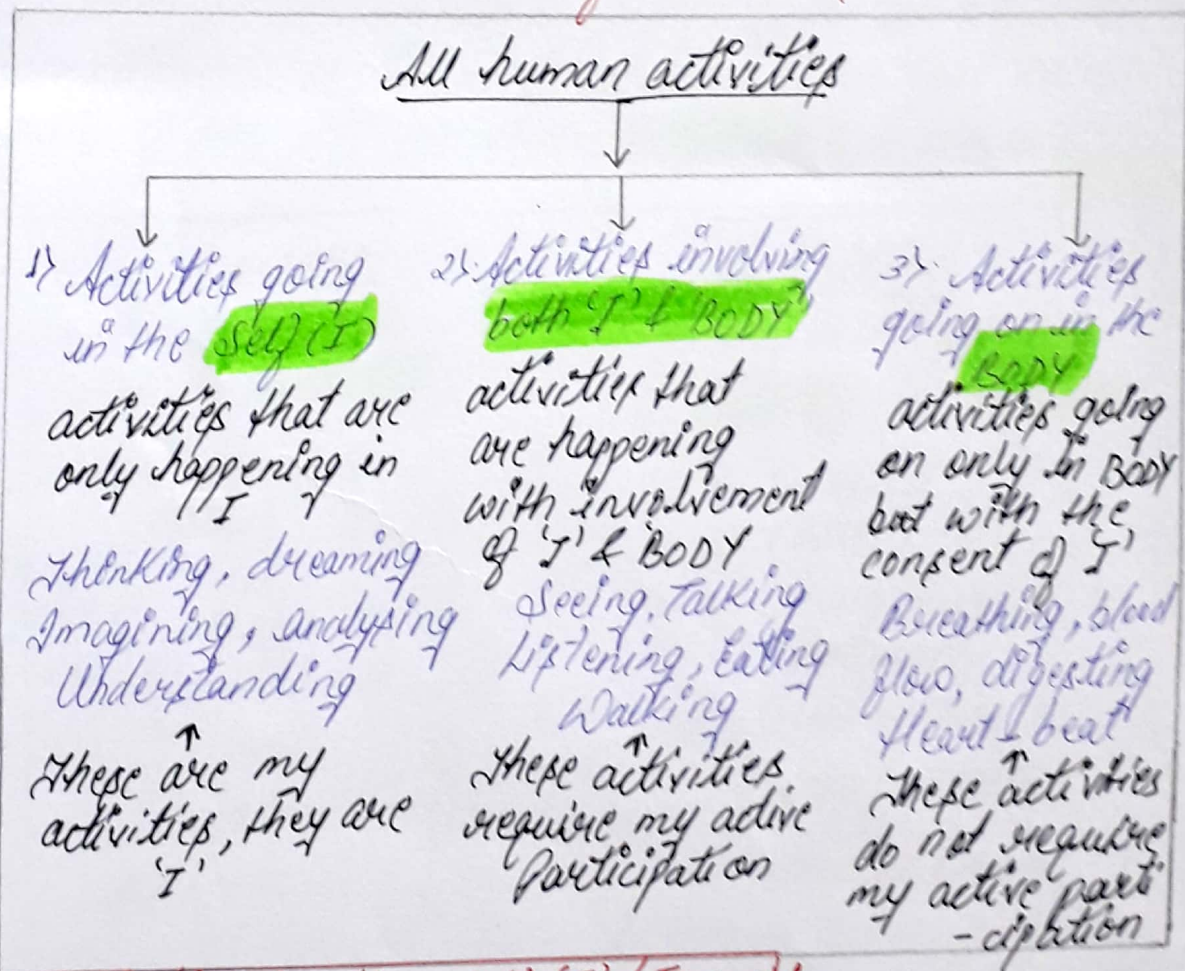 All human activities
1) Activities going
in the Self (I)
activities that are
only happening in
I
Thinking, dreaming
Imagining, analysing
Understanding
↑
These are my
activities, they are
'I'
2) Activities involving
both 'I' & 'BODY'
activities that
are happening
with involvement
of 'I' & BODY
Seeing, Talking
Listening, Eating
Walking
↑
These activities
require my active
Participation
3) Activities
going on in the
BODY
activities going
on only in BODY
but with the
consent of 'I'
Breathing, blood
flow, digesting
Heart-beat
↑
These activities
do not require
my active parti
-cipation